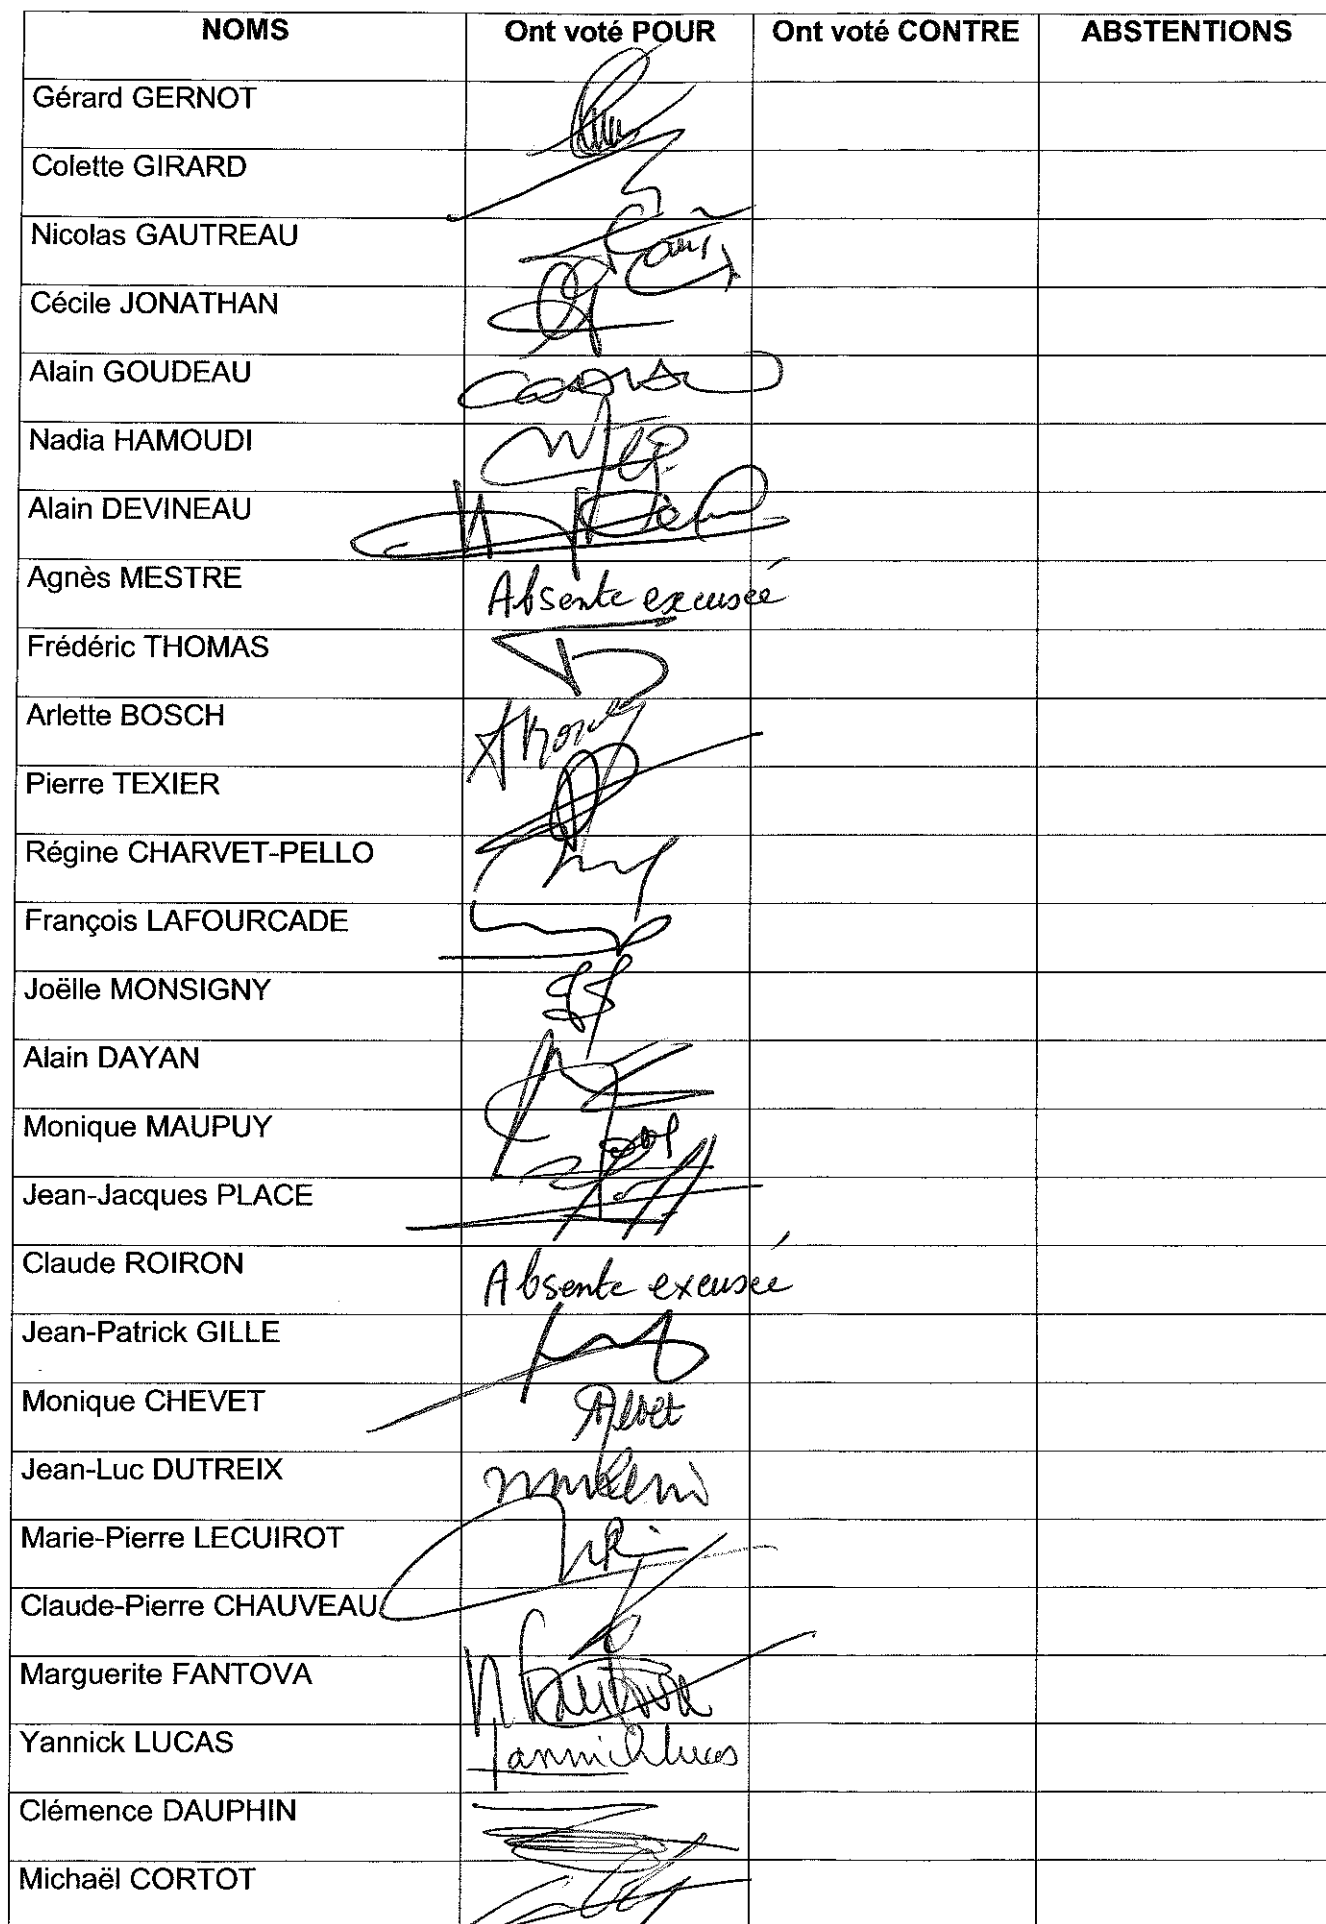 NOMS Ont voté POUR Ont voté CONTRE ABSTENTIONS
Gérard GERNOT
Colette GIRARD
Nicolas GAUTREAU
Cécile JONATHAN
Alain GOUDEAU
Nadia HAMOUDI
Alain DEVINEAU
Agnès MESTRE Absente excusée
Frédéric THOMAS
Arlette BOSCH
Pierre TEXIER
Régine CHARVET-PELLO
François LAFOURCADE
Joëlle MONSIGNY
Alain DAYAN
Monique MAUPUY
Jean-Jacques PLACE
Claude ROIRON Absente excusée
Jean-Patrick GILLE
Monique CHEVET
Jean-Luc DUTREIX
Marie-Pierre LECUIROT
Claude-Pierre CHAUVEAU
Marguerite FANTOVA
Yannick LUCAS Yannick Lucas
Clémence DAUPHIN
Michaël CORTOT